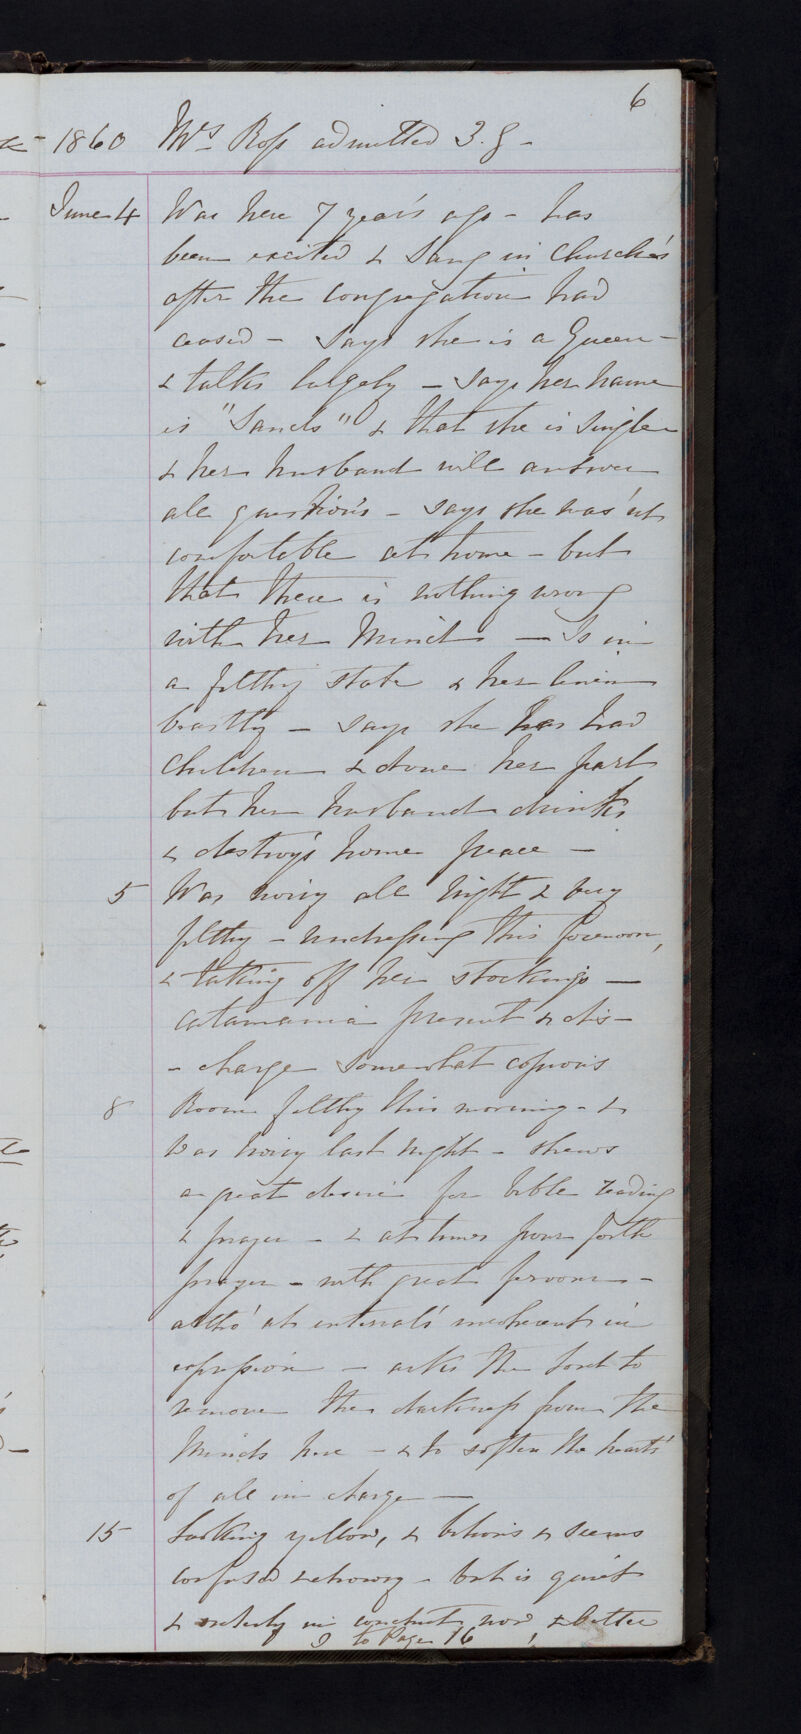 6
1860 Mrs Ross admitted 3. G -
June 4 Was here 7 year's ago - has
been excited & Sang in Church's
after the congregation had
ceased - Says she is a Queen -
& talks largely - Says her name
is "Sands" & that she is Single
& her husband will answer
all question's - Says she was'nt
comfortable at home - but
that there is nothing wrong
with her Mind - Is in
a filthy state & her linen
beastly - Says she has had
Children & done her part
but her husband drinks
& destroy's home peace -
5 Was noisy all night & very
filthy - undressing this forenoon,
& taking off her stockings -
Catamania present & dis-
- charge Somewhat copious
8 Room filthy this morning - &
was noisy last night - shews
a great desire for bible reading
& prayer - & at times pours forth
prayer - with great fervour -
altho' at interval's incoherent in
expression - asks the Lord to
remove the darkness from the
Minds here - & to soften the hearts'
of all in charge -
15 Looking yellow, & bilious & seems
confused & drowsy - but is quiet
& orderly in conduct now & better
to Page 16